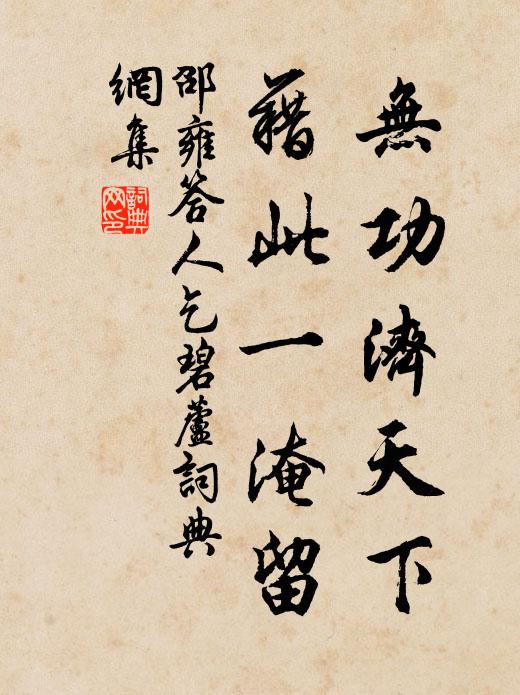 無功濟天下
藉此一淹留
邵雍答人乞碧蘆詞典
網集
詞典
网印